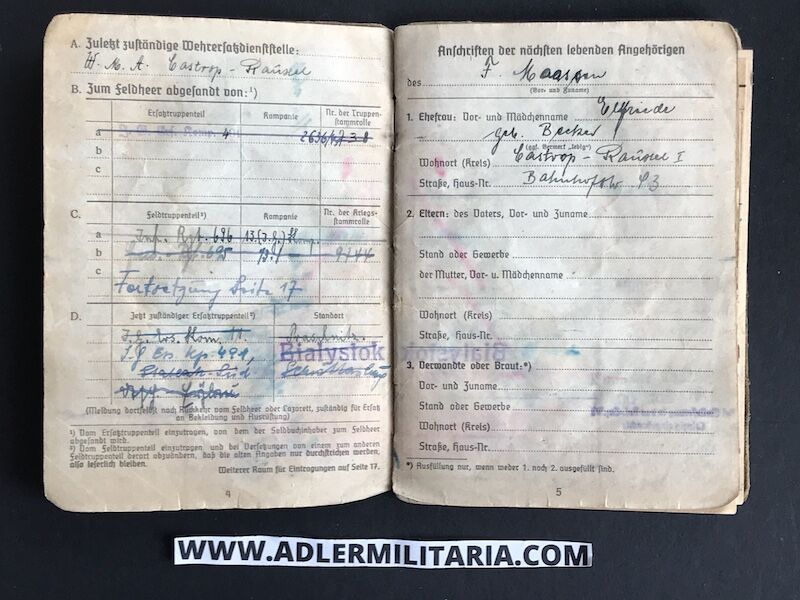 A. Zuletzt zuständige Wehrersatzdienststelle:
W. M. A. Castrop-Rauxel
B. Zum Feldheer abgesandt von:¹)
Ersatztruppenteil Kompanie Nr. der Truppenstammrolle
a 4
b
c
C. Feldtruppenteil²) Kompanie Nr. der Kriegsstammrolle
a Inf. Rgt. 696 13. (I.G.)
b
c Fortsetzung Seite 17
D. Jetzt zuständiger Ersatztruppenteil²) Standort
Bialystok
(Meldung dortselbst nach Rückkehr vom Feldheer oder Lazarett, zuständig für Ersatz
an Bekleidung und Ausrüstung)
¹) Vom Ersatztruppenteil einzutragen, von dem der Soldbuchinhaber zum Feldheer
abgesandt wird.
²) Vom Feldtruppenteil einzutragen und bei Versetzungen von einem zum anderen
Feldtruppenteil derart abzuändern, daß die alten Angaben nur durchstrichen werden,
also leserlich bleiben.
Weiterer Raum für Eintragungen auf Seite 17.
4
Anschriften der nächsten lebenden Angehörigen
des F. Maassen
(Vor- und Zuname)
1. Ehefrau: Vor- und Mädchenname Elfriede
geb. Becker
(ggf. Vermerk „ledig“)
Wohnort (Kreis) Castrop-Rauxel I
Straße, Haus-Nr.
2. Eltern: des Vaters, Vor- und Zuname
Stand oder Gewerbe
der Mutter, Vor- u. Mädchenname
Wohnort (Kreis)
Straße, Haus-Nr.
3. Verwandte oder Braut:*)
Vor- und Zuname
Stand oder Gewerbe
Wohnort (Kreis)
Straße, Haus-Nr.
*) Ausfüllung nur, wenn weder 1. noch 2. ausgefüllt sind.
5
WWW.ADLERMILITARIA.COM